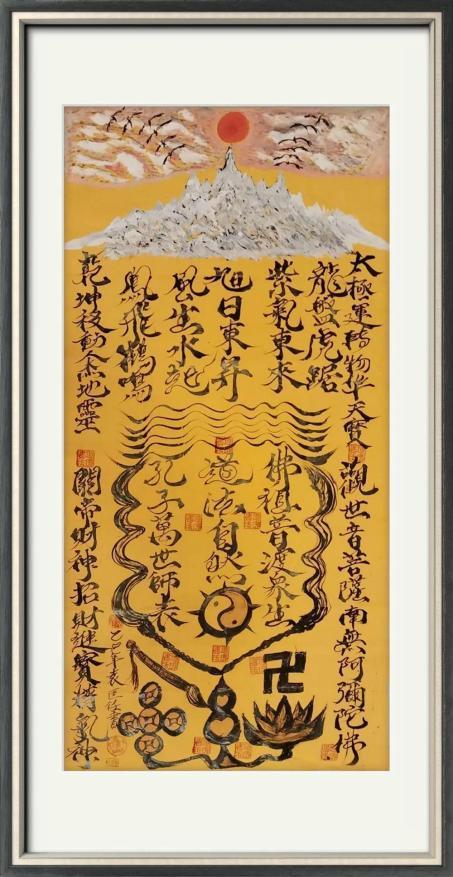 太極運轉物華天寶
龍盤虎踞
紫氣東來
旭日東昇
風生水起
鳳飛鶴鳴
乾坤移動人杰地靈
觀世音菩薩南無阿彌陀佛
佛祖普渡眾生
道法自然
孔子萬世師表
關帝財神招財進寶精氣神
卍